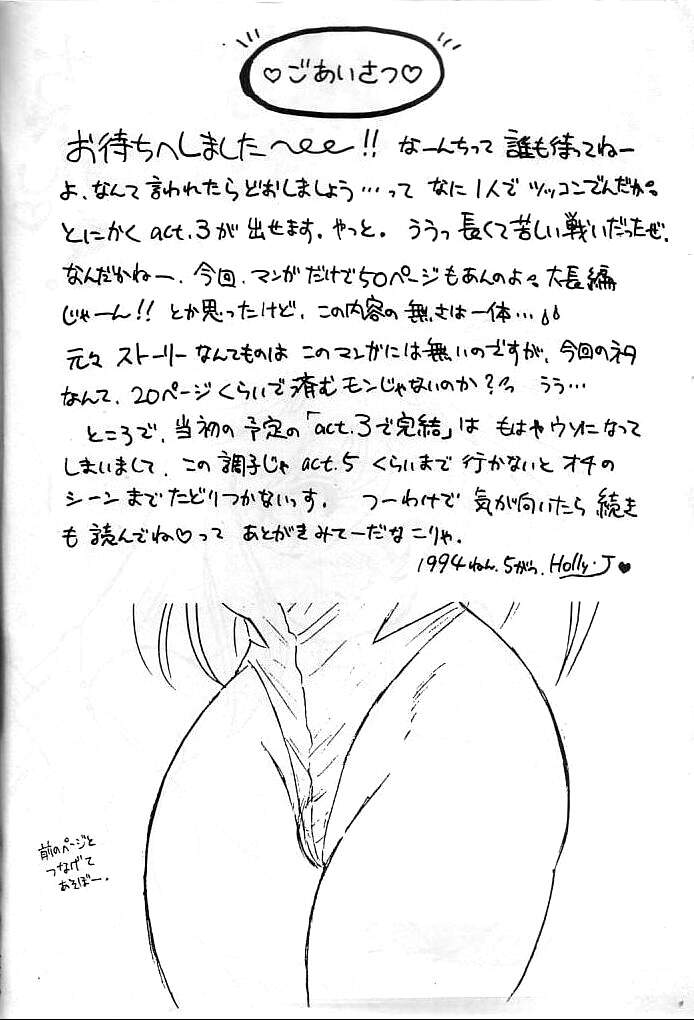 ♡ごあいさつ♡
お待ちへしました〜!! なーんちって 誰も待ってねー
よ、なんて言われたらどおしましょう…って なに1人で ツッコンでんだか。
とにかく act.3が 出せます。やっと。 ううっ 長くて苦しい戦いだったぜ。
なんだかねー、今回、マンガだけで50ページもあんのよ。大長編
じゃーん!! とか思ったけど、この内容の無さは一体…
元々 ストーリーなんてものは このマンガには無いのですが、今回のネタ
なんて、20ページくらいで済むモンじゃないのか?っ うう…
ところで、当初の予定の「act.3で完結」は もはやウソになって
しまいまして、この調子じゃ act.5 くらいまで行かないと オチの
シーンまでたどりつかないっす。 つーわけで 気が向いたら 続き
も 読んでね♡って あとがきみてーだな こりゃ。
1994ねん.5がつ. Holly・J♥
前のページと
つなげて
あそぼー。